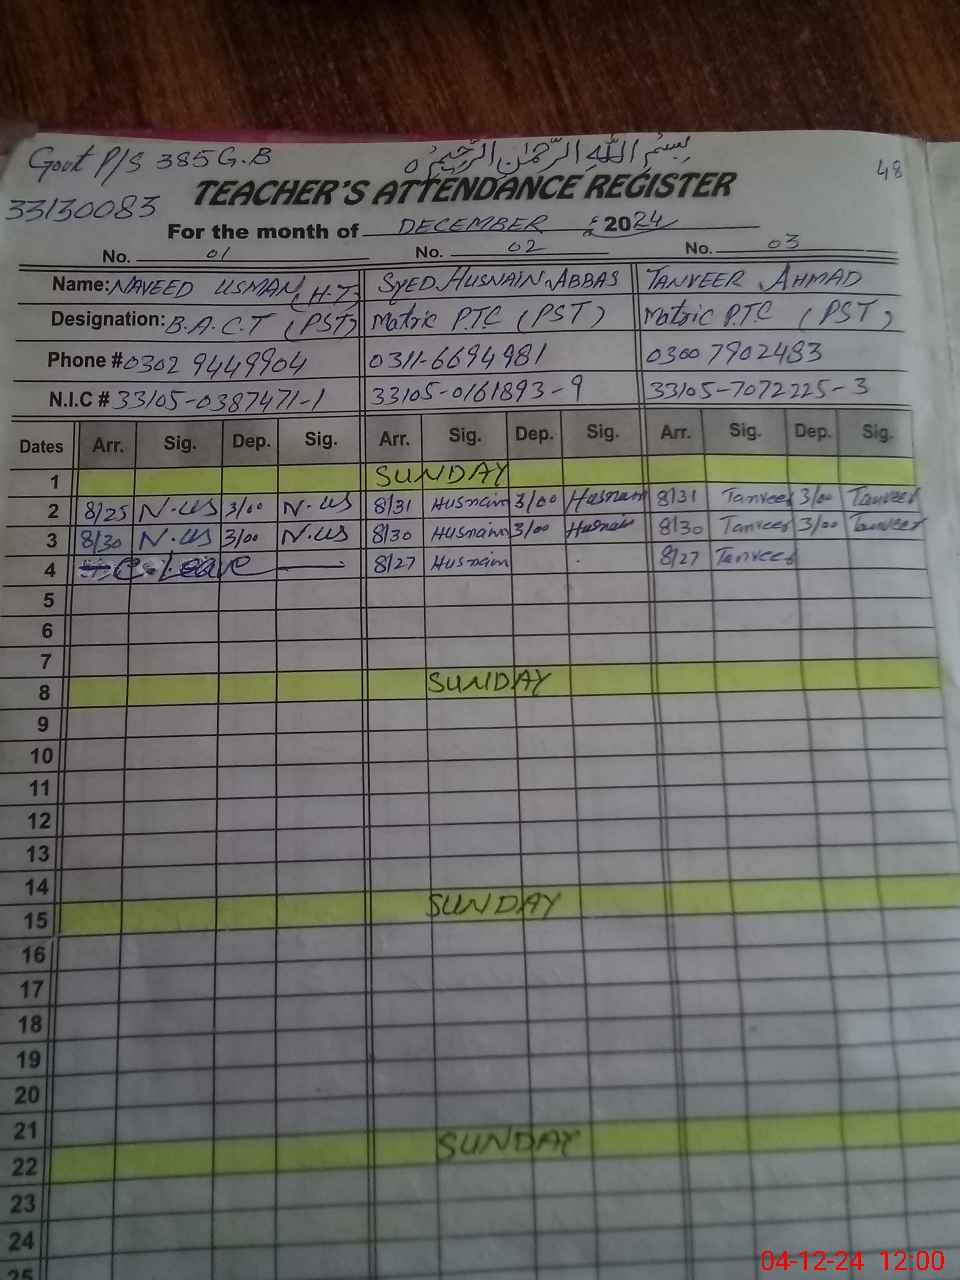 بِسْمِ اللّٰهِ الرَّحْمٰنِ الرَّحِيْمِ
Govt P/S 385 G.B
48
33130083
TEACHER'S ATTENDANCE REGISTER
For the month of DECEMBER 2024
No. 01 No. 02 No. 03
Name: NAVEED USMAN (H.T) SYED HUSNAIN ABBAS TANVEER AHMAD
Designation: B.A.C.T (PST) Matric P.T.C (PST) Matric P.T.C (PST)
Phone # 0302 9449904 0311-6694981 0300 7902483
N.I.C # 33105-0387471-1 33105-0161893-9 33105-7072225-3
Dates Arr. Sig. Dep. Sig. Arr. Sig. Dep. Sig. Arr. Sig. Dep. Sig.
1 SUNDAY
2 8/25 N.us 3/00 N.us 8/31 Husnain 3/00 Husnain 8/31 Tanveer 3/00 Tanveer
3 8/30 N.us 3/00 N.us 8/30 Husnain 3/00 Husnain 8/30 Tanveer 3/00 Tanveer
4 C.Leave 8/27 Husnain 8/27 Tanveer
5
6
7
8 SUNDAY
9
10
11
12
13
14
15 SUNDAY
16
17
18
19
20
21
22 SUNDAY
23
24
25
04-12-24 12:00